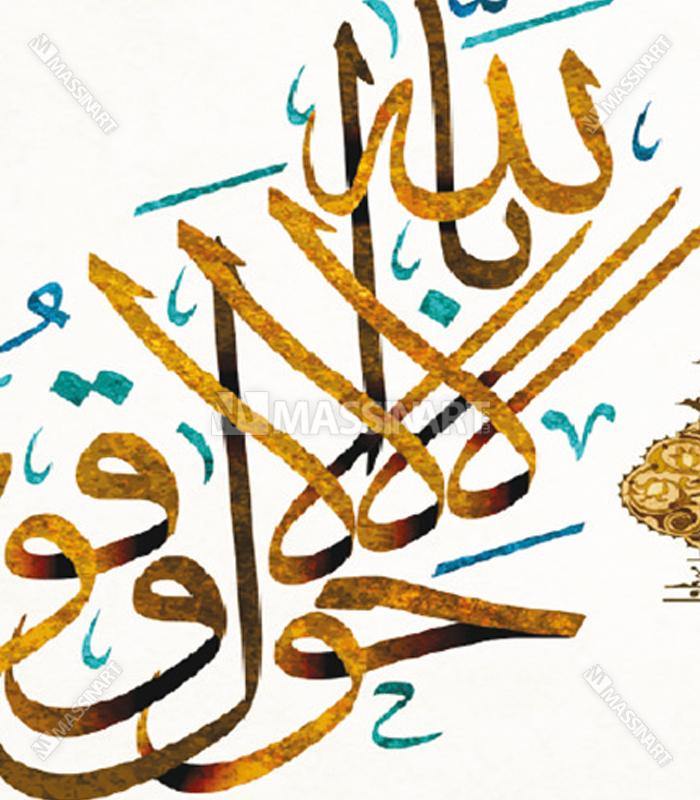 لا حول ولا قو
إلا بالله
MASSINART
MASSINART
MASSINART
MASSINART
MASSINART